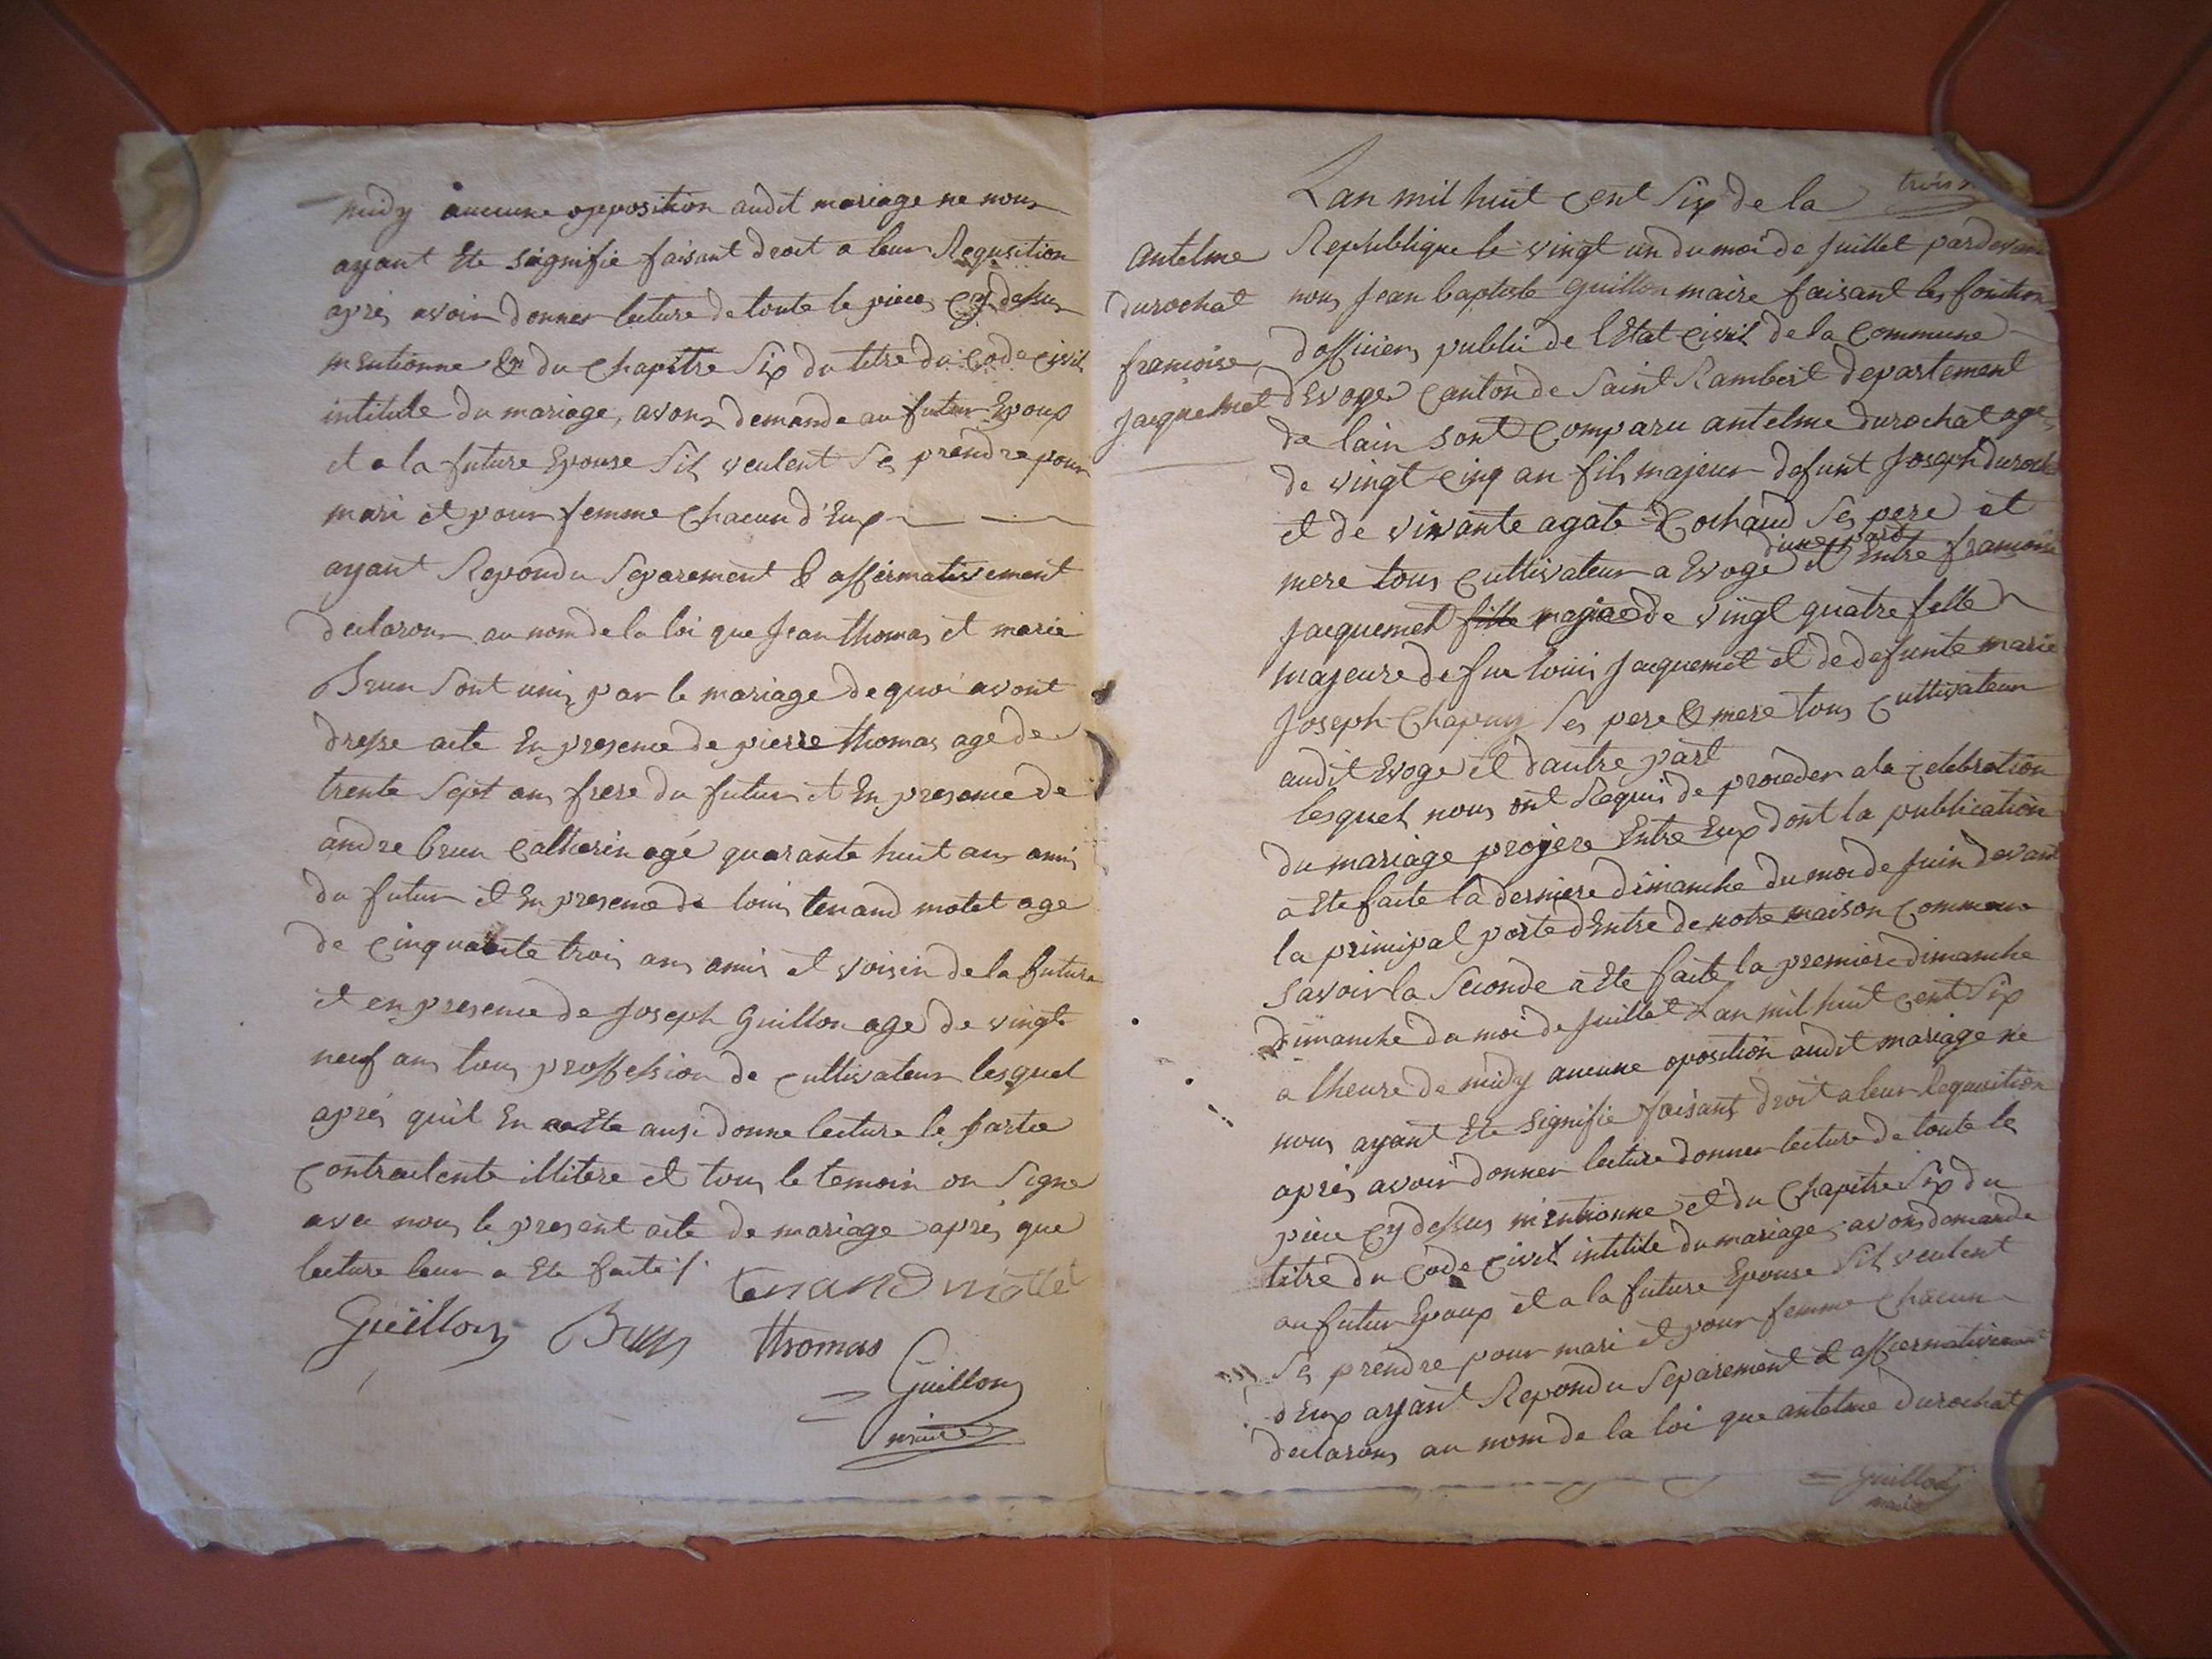 midy aucune opposition audit mariage ne nous
ayant Ete signifie faisant droit a leur Requsition
après avoir donner lecture de toute le pieces cy dessus
mentionne & du Chapitre Six du titre du Code Civil
intitule du mariage, avons demande au futur Epoux
et a la future Epouse Sil veulent Ses prendre pour
mari et pour femme Chacun d'Eux
ayant Repondu Separement & affirmativement
declarons au nom de la loi que Jean thomas et marie
Brun Sont unis par le mariage de quoi avont
dresse acte En presence de pierre thomas age de
trente Sept ans frere du futur et En presence de
andre brun Catherin agé quarante huit ans amis
du futur et En presence de louis tenand motet age
de cinquante trois ans amis et voisin de la future
et en presence de Joseph Guillon age de vingt
neuf ans tous proffession de cultivateur lesquel
après quil En aette ausi donne lecture le partie
Contractente illitere et tous le temoin on Signe
avec nous le present acte de mariage après que
lecture leur a Ete faite /.
tenand mottet
Guillon Brun thomas
Guillon
maire
trois
Lan mil huit Cent Six de la
Republique le vingt un du moi de Juillet pardevant
nous Jean baptiste Guillon maire faisant les fonction
dofficiers public de lEtat Civil de la Commune
dEvoges Canton de Saint Rambert departement
de lain sont Comparu antelme durochat age
de vingt cinq an fils majeur defunt Joseph durochat
et de vivante agate Cochaud Ses pere et
mere tous Cultivateur a Evoge d'une part et Entre francoise
Antelme
durochat
francoise
Jacquemet
Jacquemet fille majeede vingt quatre felle
majeure de fue louis Jacquemet et de defunte marie
Joseph Chapuy Ses pere & mere tous Cultivateur
audit Evoge et dautre part
lesquel nous ont Requis de proceder a la Celebration
du mariage projere Entre Eux dont la publication
a Ete faite la derniere dimanche du moi de Juin devant
la principal porte dEntre de notre maison Commune
Savoir la Seconde a Ete faite la premiere dimanche
dimanche du moi de Juillet Lan mil huit cent Six
a lheure de midy aucune oposition audit mariage ne
nous ayant Ete Signifie faisant droit a leur Requisition
après avoir donner lecture donner lecture de toute les
piece Cy dessus mentionne et du Chapitre Six du
titre du Code Civil intitile du mariage, avons demande
au futur Epoux et a la future Epouse Sil veulent
Ses prendre pour mari et pour femme Chacun
dEux ayant Repondu Separement et affirmativement
declarons au nom de la loi que antelme durochat
Guillon
maire